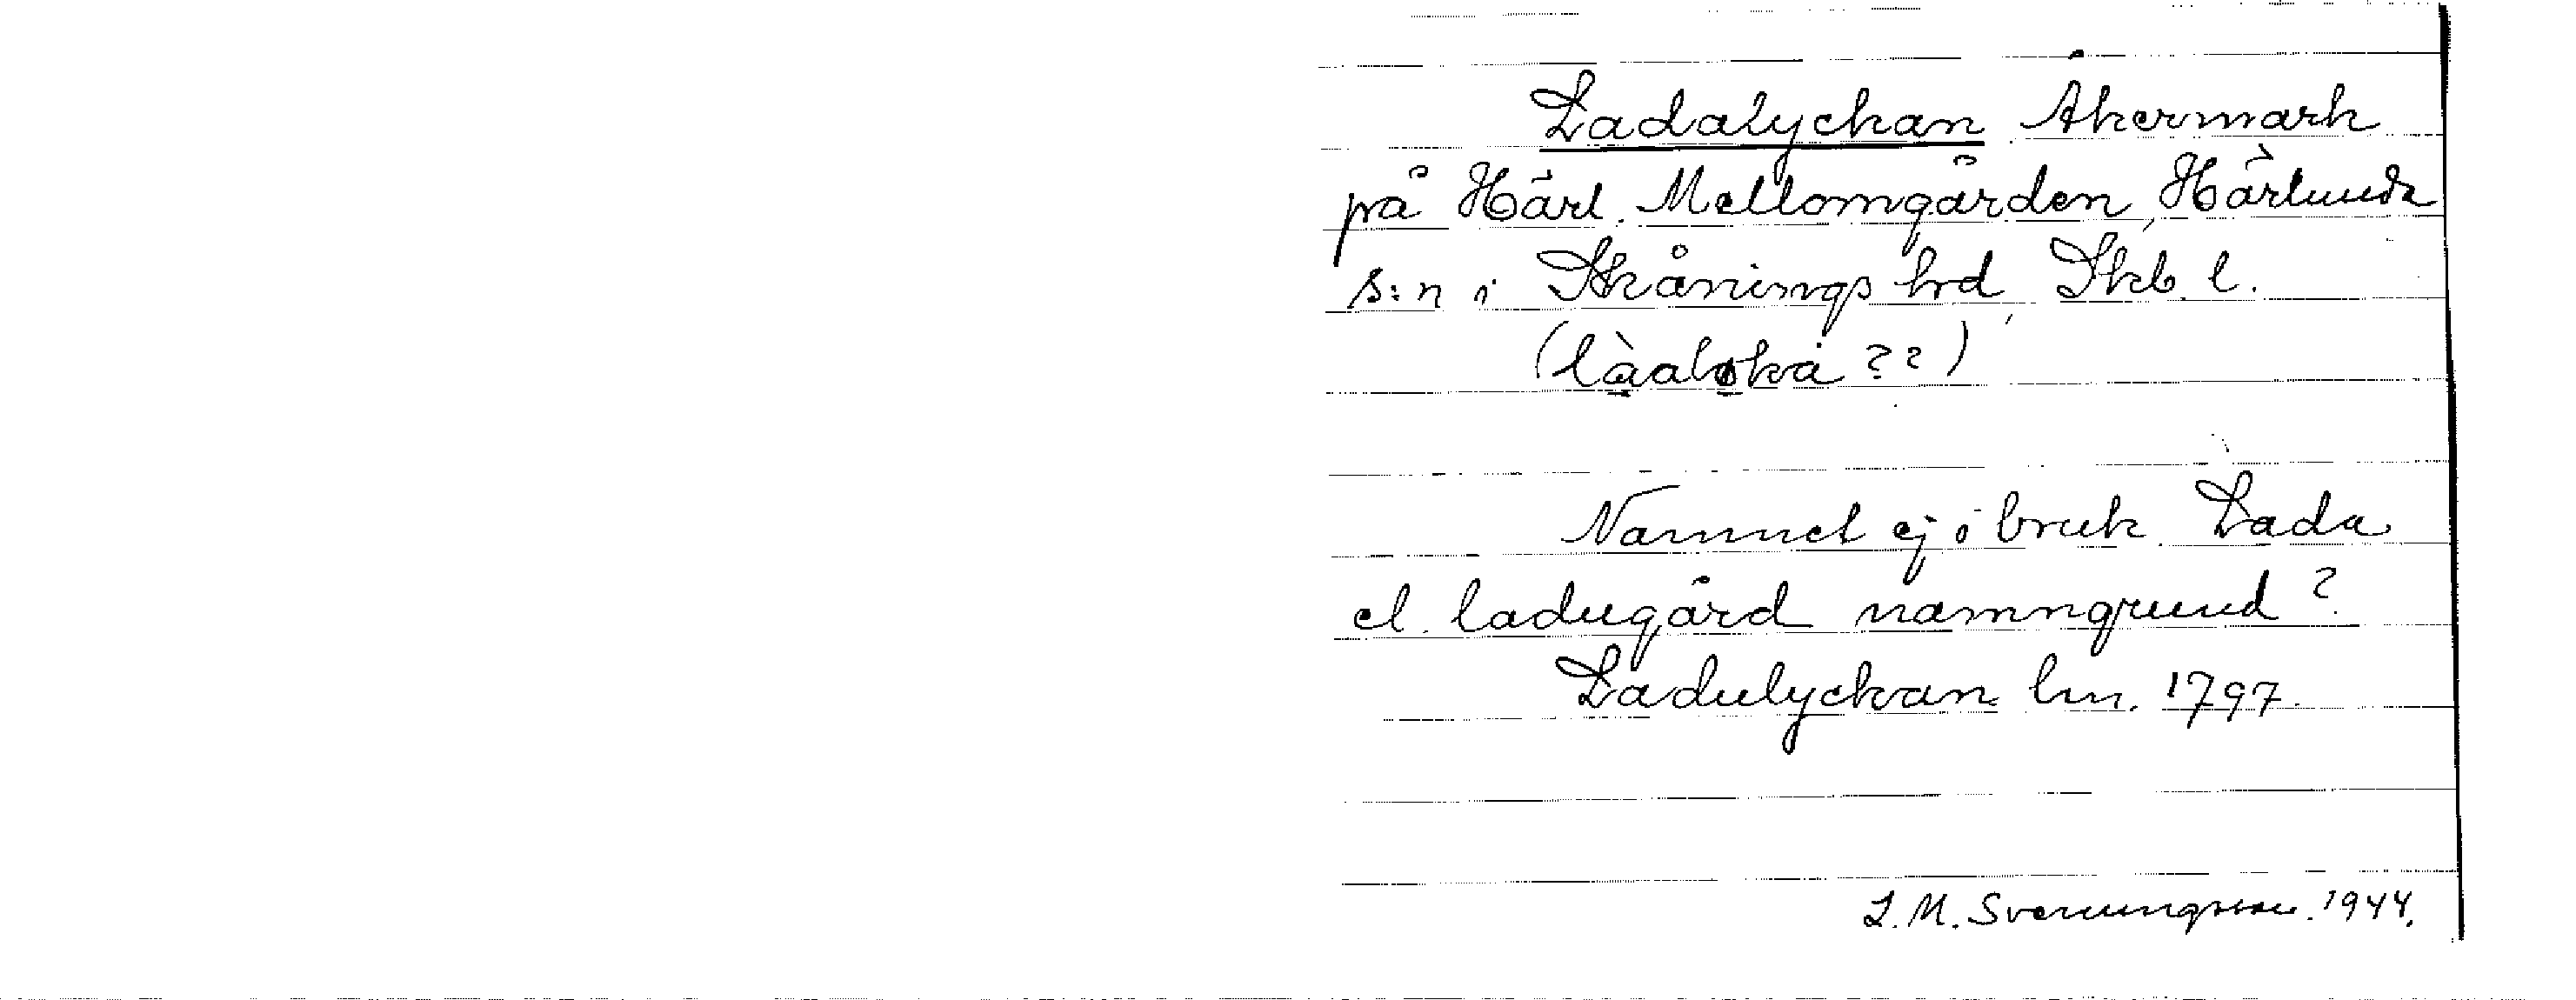 Ladalyckan Åkermark
på Härl. Mellomgården, Härlunda
s:n i Skånings hrd, Skb. l.
(làaløka ??)
Namnet ej i bruk. Lada
el. ladugård namngrund?
Ladulyckan lm. 1797.
L. M. Svenungsson. 1944.